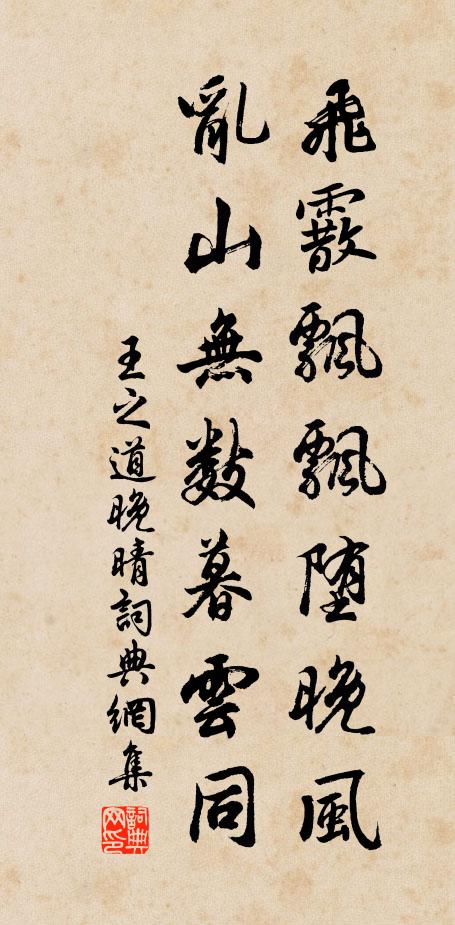 飛霰飄飄堕晚風
亂山無數暮雲同
王之道晚晴詞典網集
詞典网印